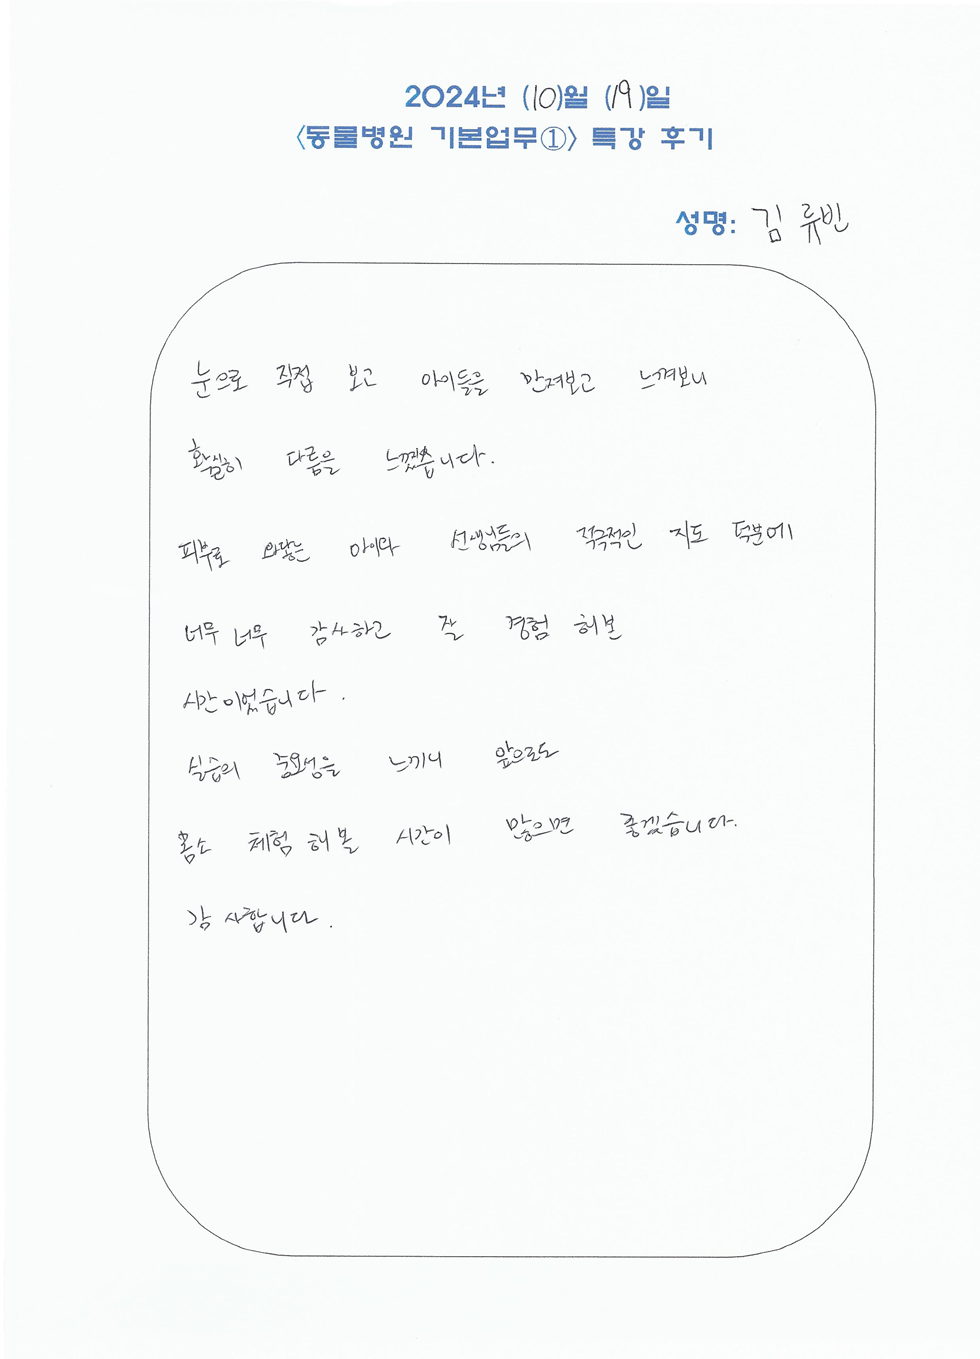 2024년 (10)월 (19)일
〈동물병원 기본업무①〉 특강 후기
성명: 김류빈
눈으로 직접 보고 아이들을 만져보고 느껴보니
확실히 다름을 느꼈습니다.
피부로 와닿는 아이와 선생님들의 적극적인 지도 덕분에
너무너무 감사하고 잘 경험 해본
시간이었습니다.
실습의 중요성을 느끼니 앞으로도
몸소 체험 해볼 시간이 많으면 좋겠습니다.
감사합니다.